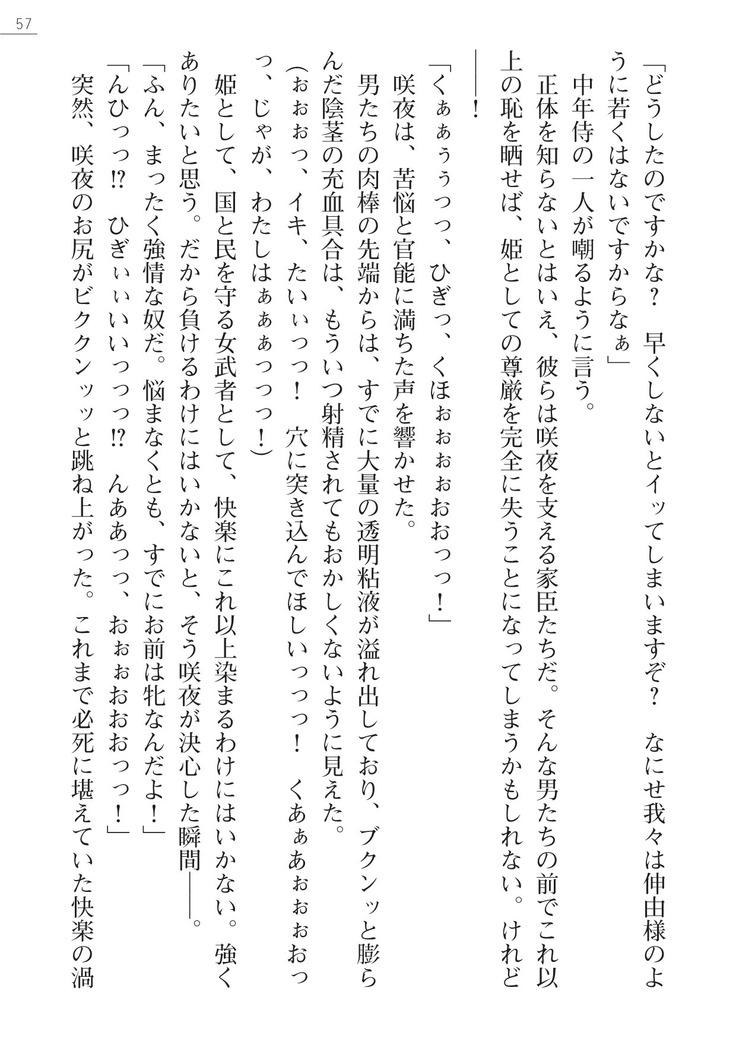 57
「どうしたのですかな？　早くしないとイッてしまいますぞ？　なにせ我々は伸由様のよ
うに若くはないですからなぁ」
　中年侍の一人が嘲るように言う。
　正体を知らないとはいえ、彼らは咲夜を支える家臣たちだ。そんな男たちの前でこれ以
上の恥を晒せば、姫としての尊厳を完全に失うことになってしまうかもしれない。けれど
――！
「くぁぁぅぅっっ、ひぎっ、くほぉぉぉぉおおっっ！」
　咲夜は、苦悩と官能に満ちた声を響かせた。
　男たちの肉棒の先端からは、すでに大量の透明粘液が溢れ出しており、ブクンッと膨ら
んだ陰茎の充血具合は、もういつ射精されてもおかしくないように見えた。
（ぉぉぉっ、イキ、たいぃっっ！　穴に突き込んでほしいっっっ！　くあぁあぉぉぉおっ
っ、じゃが、わたしはぁぁぁっっっ！）
　姫として、国と民を守る女武者として、快楽にこれ以上染まるわけにはいかない。強く
ありたいと思う。だから負けるわけにはいかないと、そう咲夜が決心した瞬間――。
「ふん、まったく強情な奴だ。悩まなくとも、すでにお前は牝なんだよ！」
「んひっっ!?　ひぎぃぃいいっっっ!?　んああっっ、おぉぉおおおっっ！」
　突然、咲夜のお尻がビククンッッと跳ね上がった。これまで必死に堪えていた快楽の渦